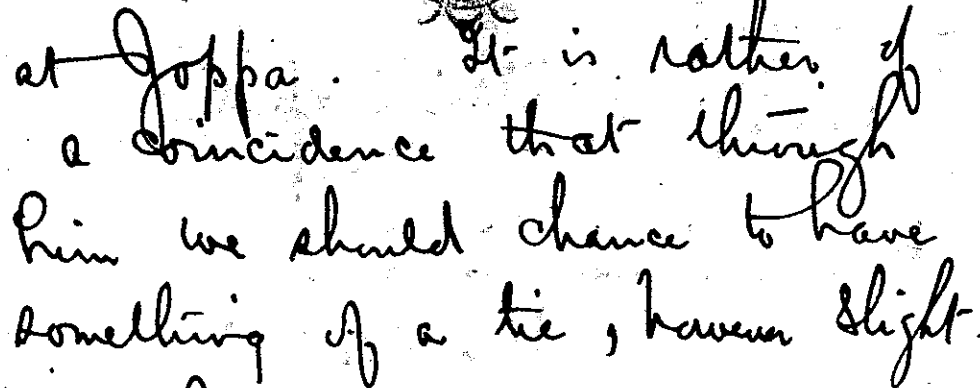 at Joppa. It is rather of
a coincidence that through
him we should chance to have
something of a tie, however slight.